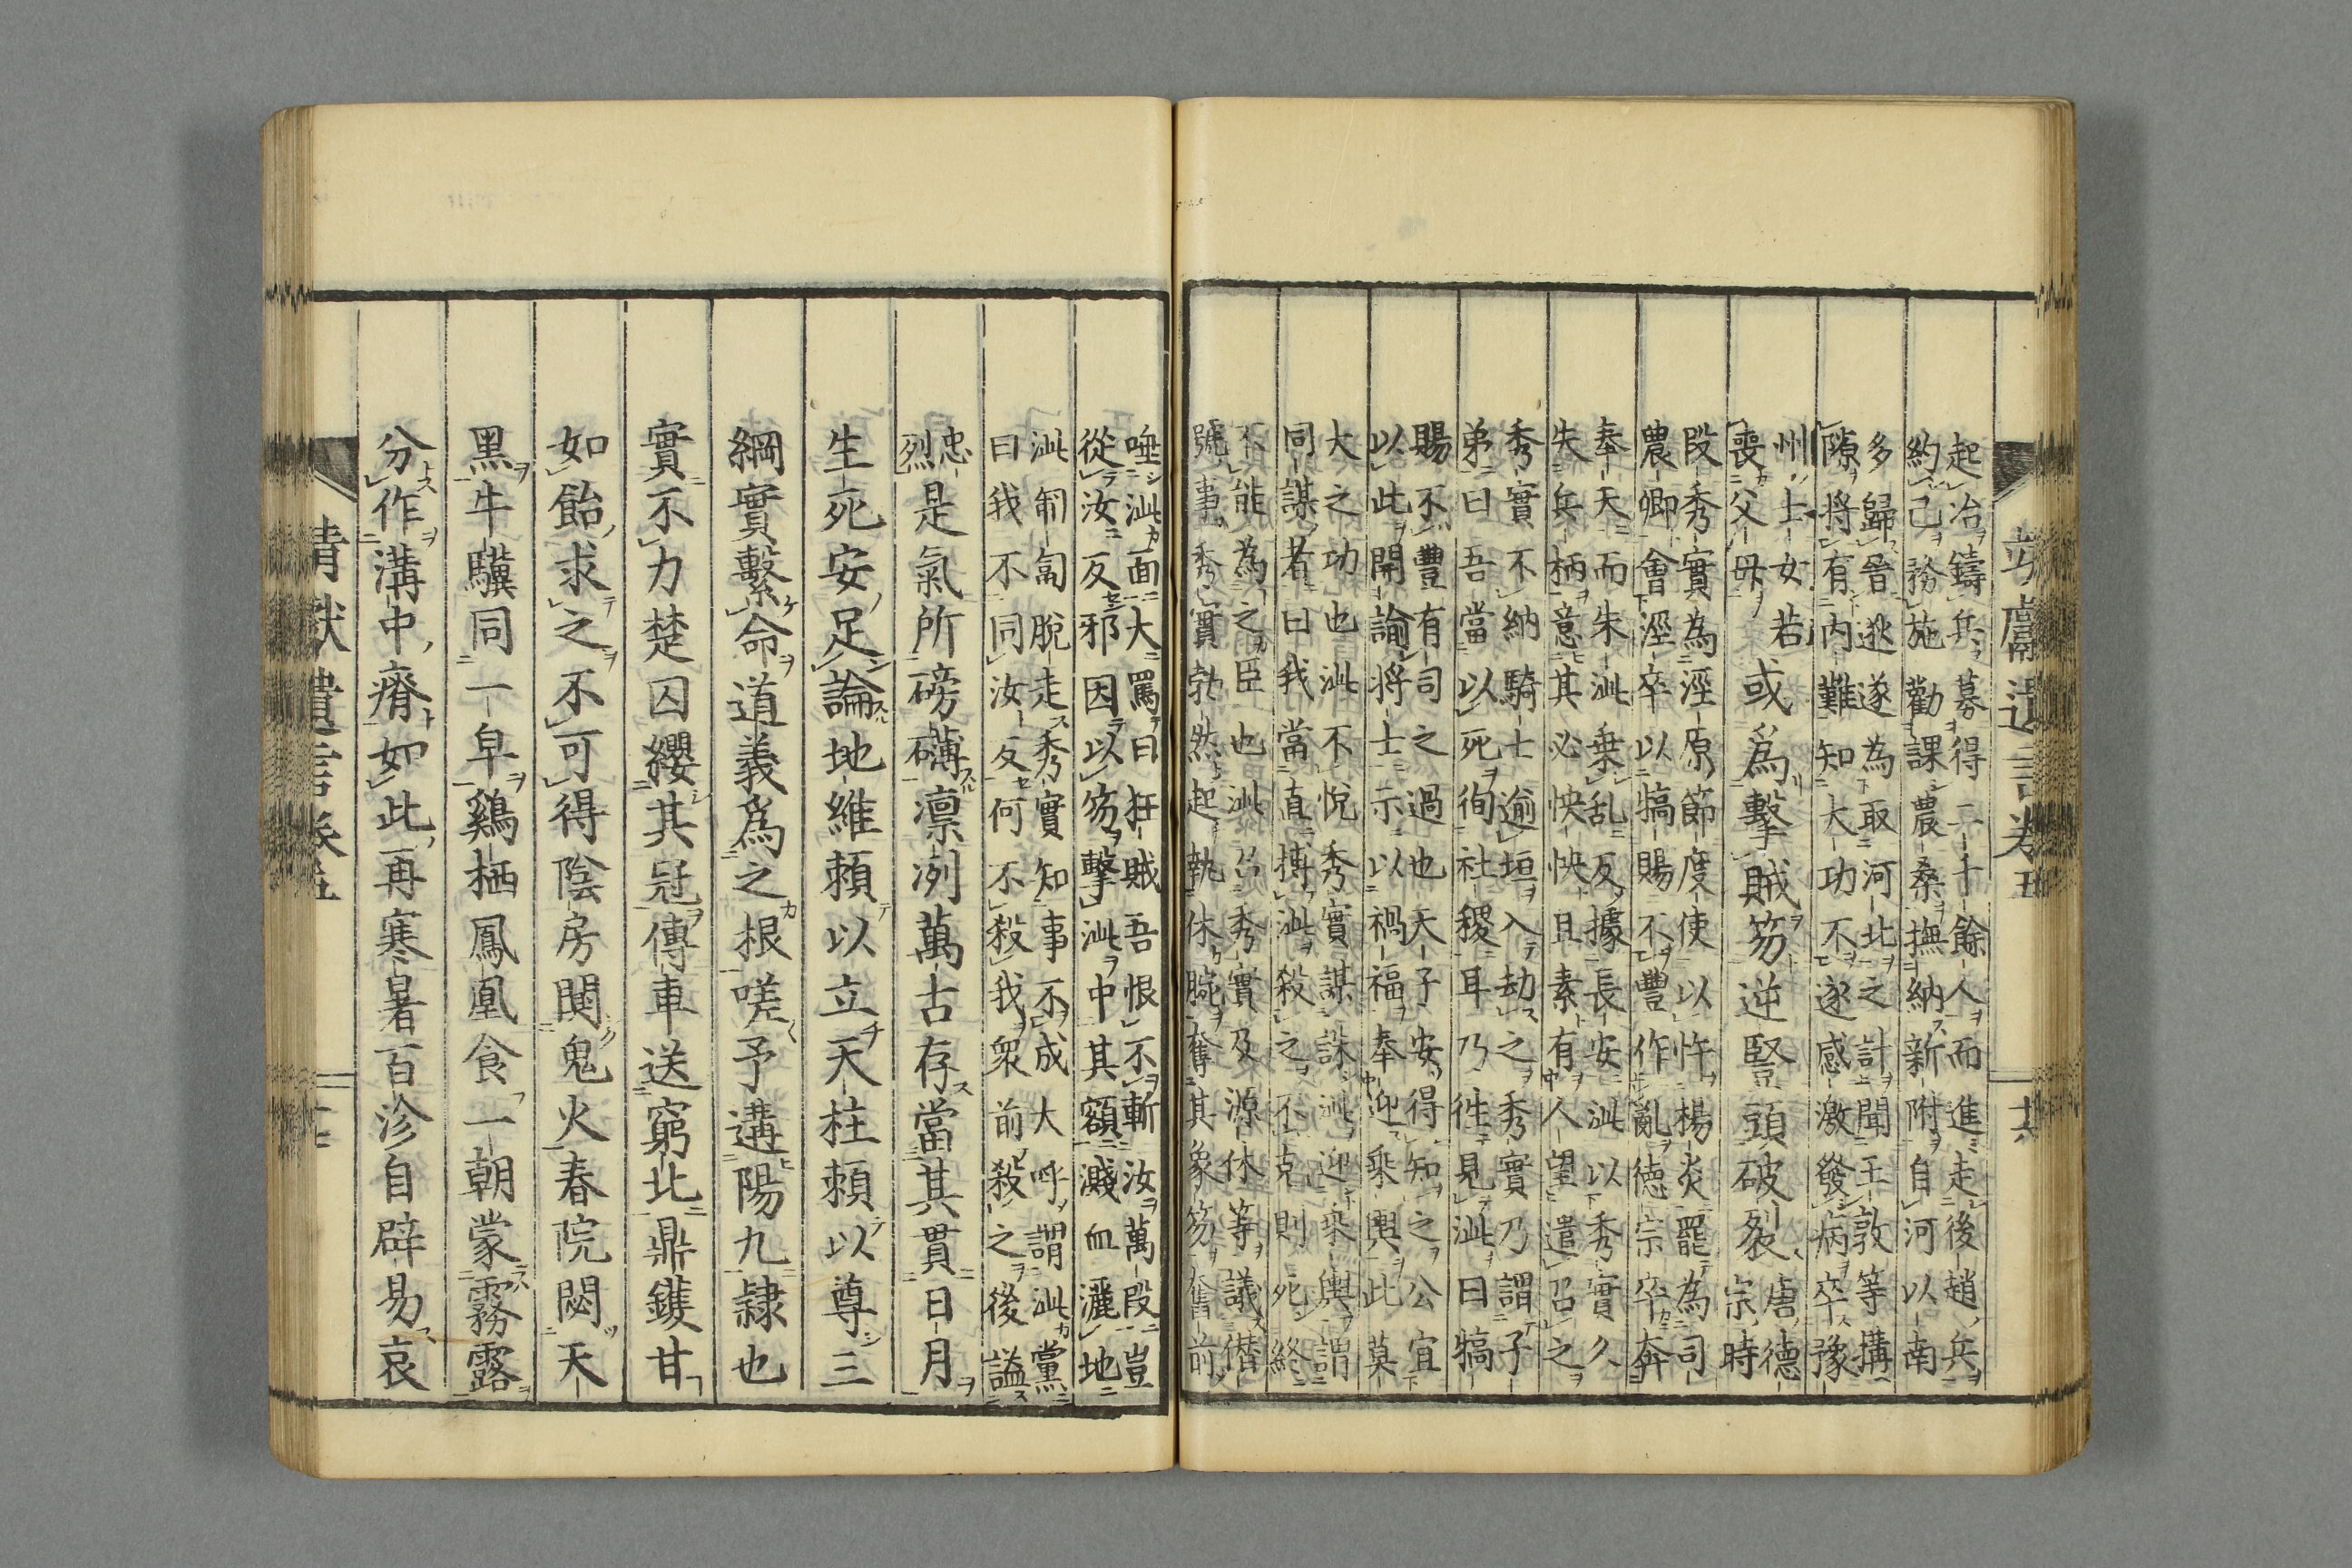 靖獻遺言卷五　十六
起冶鑄兵募得二千餘人而進走後趙兵
約己務施勸課農桑撫納新附自河以南
多歸晉逖遂為取河北之計聞王敦等搆
隙將有內難知大功不遂感激發病卒豫
州士女若
喪父母
或爲擊賊笏逆豎頭破裂
唐德
宗時
段秀實為涇原節度使以忤楊炎罷為司
農卿會涇卒以犒賜不豐作亂德宗卒奔
奉天而朱泚乗乱反據長安泚以秀實久
失兵柄意其必怏怏且素有人望遣召之
秀實不納騎士逾垣入劫之秀實乃謂子
弟曰吾當以死徇社稷耳乃徃見泚曰犒
賜不豐有司之過也天子安得知之公宜
以此開諭將士示以禍福奉迎乘輿此莫
大之功也泚不悅秀實謀誅泚迎乘輿謂
同謀者曰我當直搏泚殺之不克則死終
不能為之臣也泚召秀實及源休等議僭
號事秀實勃然起執休腕奪其象笏奮前
唾泚面大罵曰狂賊吾恨不斬汝萬段豈
從汝反邪因以笏擊泚中其額濺血灑地
泚匍匐脫走秀實知事不成大呼謂泚黨
曰我不同汝反何不殺我衆前殺之後謚
忠
烈
是氣所磅礴凛冽萬古存當其貫日月
生死安足論地維賴以立天柱賴以尊三
綱實繫命道義爲之根嗟予遘陽九隷也
實不力楚囚纓其冠傳車送窮北鼎鑊甘
如飴求之不可得陰房闃鬼火春院閟天
黑牛驥同一皁鷄栖鳳凰食一朝蒙霧露
分作溝中瘠如此再寒暑百沴自辟易哀
靖獻遺言卷五